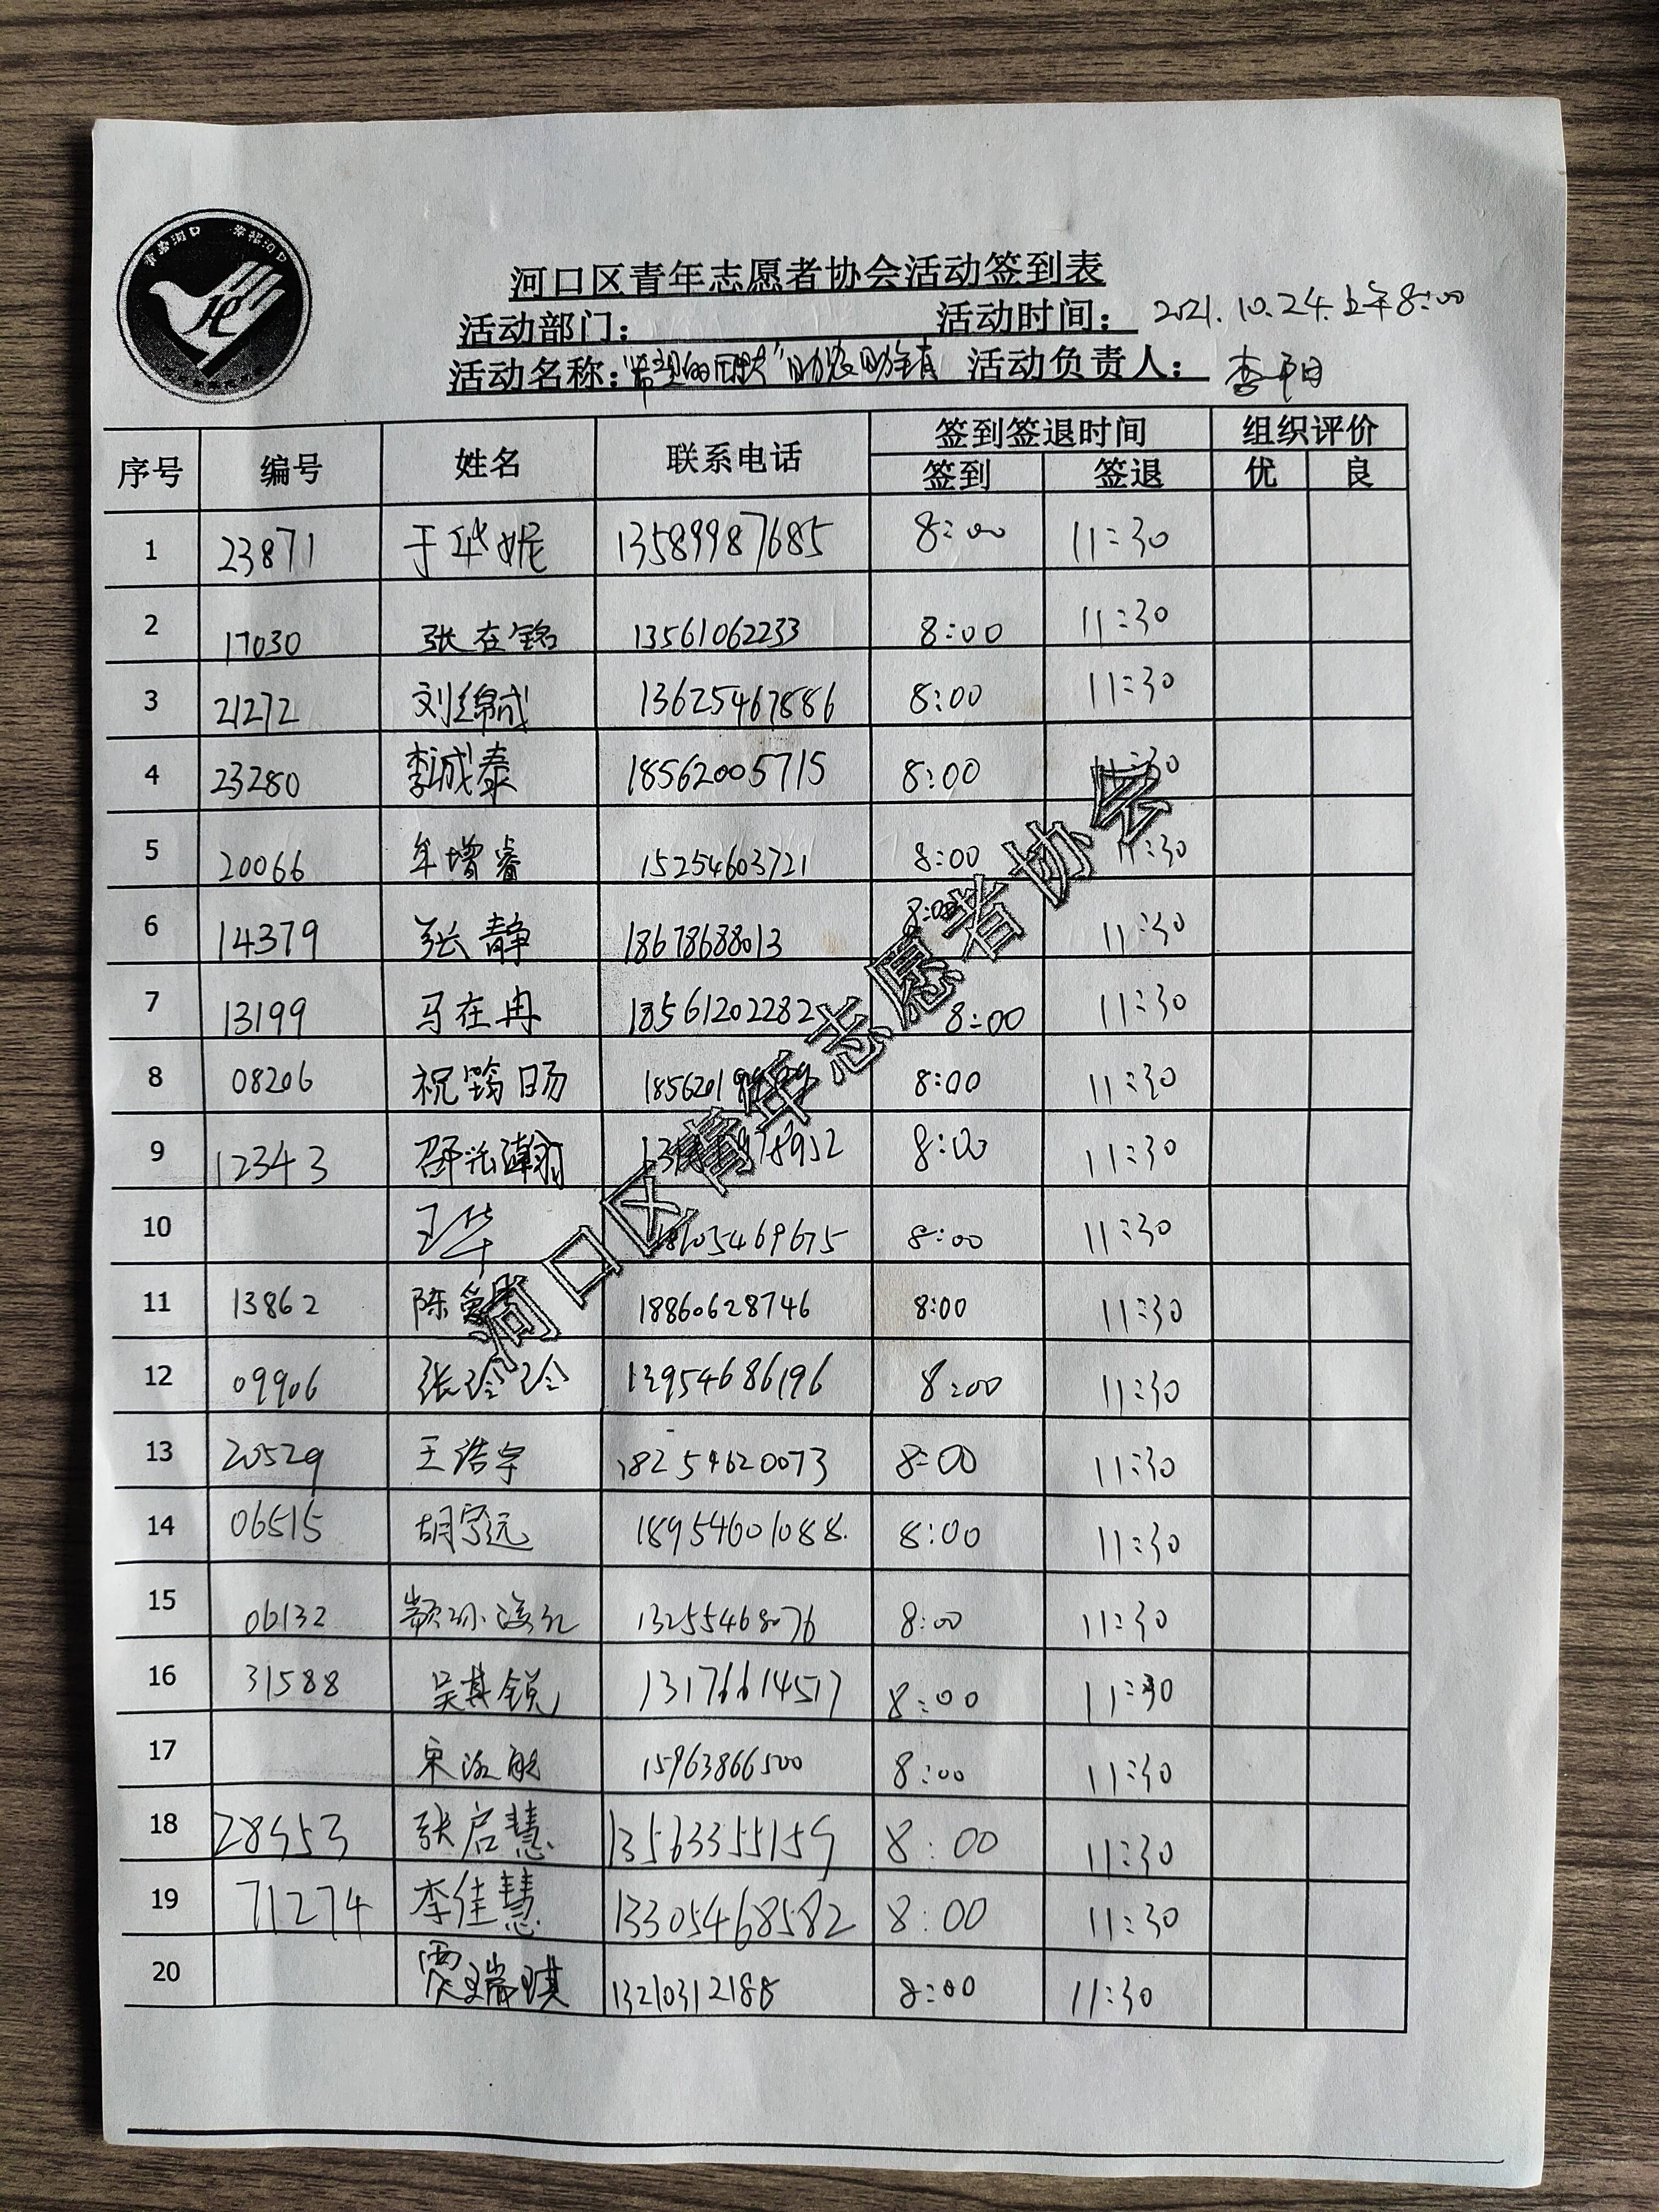 青春河口 幸福河口
河口区青年志愿者协会活动签到表
活动部门： 活动时间： 2021.10.24.上午8:00
活动名称：“希望的田野”助农助 活动负责人： 李平日
序号 编号 姓名 联系电话 签到签退时间 组织评价
签到 签退 优 良
1 23871 于华妮 13589987685 8:00 11:30
2 17030 张在铭 13561062233 8:00 11:30
3 21272 刘锦成 13625467886 8:00 11:30
4 23280 李诚泰 18562005715 8:00 11:30
5 20066 年增睿 15254603721 8:00 11:30
6 14379 张静 18678688013 8:00 11:30
7 13199 马在冉 18561202282 8:00 11:30
8 08206 祝 旸 8:00 11:30
9 12343 邵 瀚 8:00 11:30
10 王华 18605469675 8:00 11:30
11 13862 陈 18860628746 8:00 11:30
12 09906 张玲玲 13954686196 8:00 11:30
13 20529 王浩宇 18254620073 8:00 11:30
14 06515 胡宁远 18954601088 8:00 11:30
15 06132 颛孙 13255468076 8:00 11:30
16 31588 吴其锐 13176614517 8:00 11:30
17 宋 航 15963866500 8:00 11:30
18 28953 张启慧 13563355159 8:00 11:30
19 71274 李佳慧 13305468582 8:00 11:30
20 贾瑞琪 13210312188 8:00 11:30
河口区青年志愿者协会